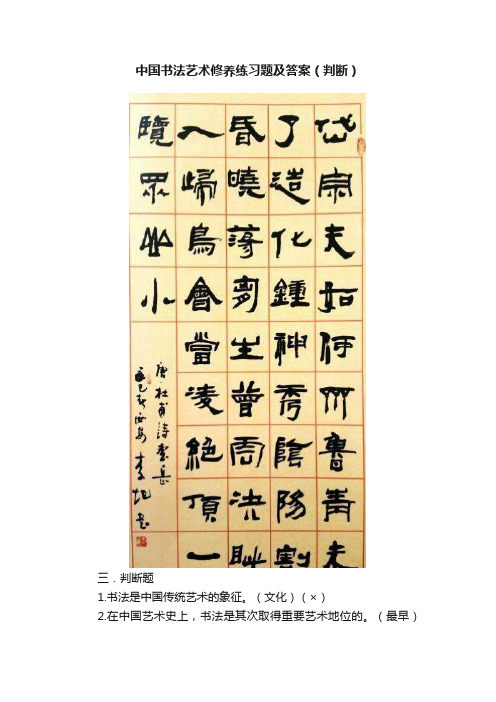 中国书法艺术修养练习题及答案（判断）
岱宗夫如何齊魯青未
了造化鍾神秀陰陽割
昏曉蕩胸生曾雲決眥
入歸鳥會當凌絕頂一
覽眾山小
唐杜甫詩望岳
三．判断题
1.书法是中国传统艺术的象征。（文化）（×）
2.在中国艺术史上，书法是其次取得重要艺术地位的。（最早）